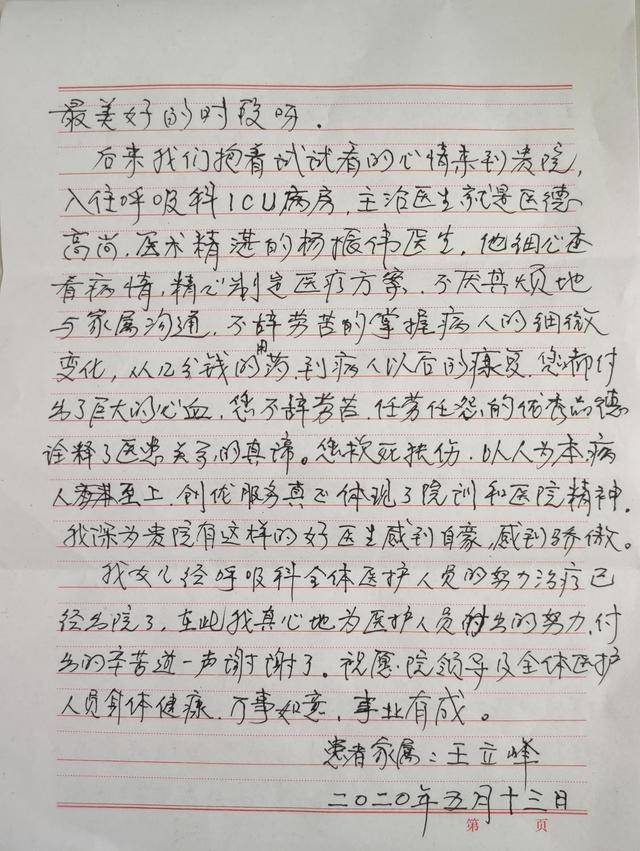 最美好的时段呀.
后来我们抱着试试看的心情来到贵院,
入住呼吸科ICU病房.主治医生就是医德
高尚.医术精湛的杨振伟医生.他细心查
看病情,精心制定医疗方案.不厌其烦地
与家属沟通,不辞劳苦的掌握病人的细微
变化,从几分钱的用药,到病人以后的康复.您都付
出了巨大的心血,您不辞劳苦.任劳任怨的优秀品德
诠释了医患关系的真谛。您救死扶伤.以人为本.病
人至上.创优服务真正体现了院训和医院精神.
我深为贵院有这样的好医生感到自豪,感到骄傲。
我女儿经呼吸科全体医护人员的努力治疗已
经出院了,在此我真心地为医护人员的努力,付
出的辛苦道一声谢谢了。祝愿院领导及全体医护
人员身体健康.万事如意,事业有成。
患者家属:王立峰
二〇二〇年五月十三日
第 页